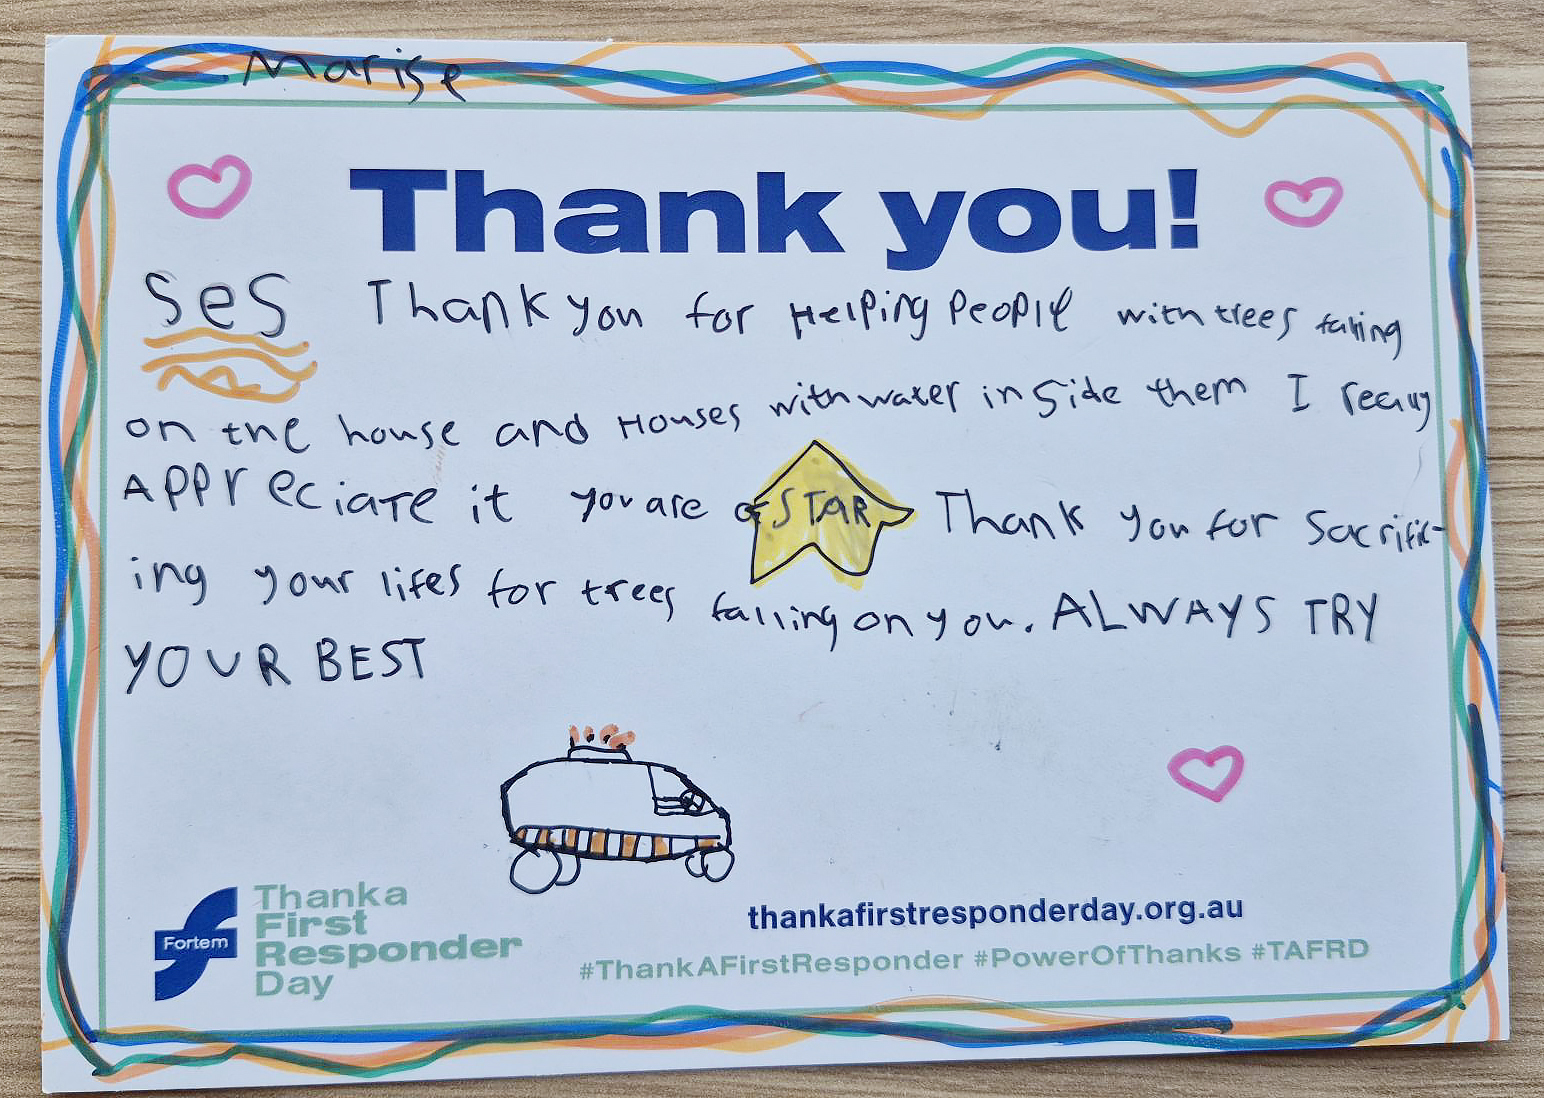 Marise
Thank you!
SeS Thank you for Helping People with trees falling
on the house and Houses with water inside them I really
APPreciate it you are a STAR Thank you for Sacrific-
ing your lifes for trees falling on you. ALWAYS TRY
YOUR BEST
Fortem
Thank a
First
Responder
Day
thankafirstresponderday.org.au
#ThankAFirstResponder #PowerOfThanks #TAFRD